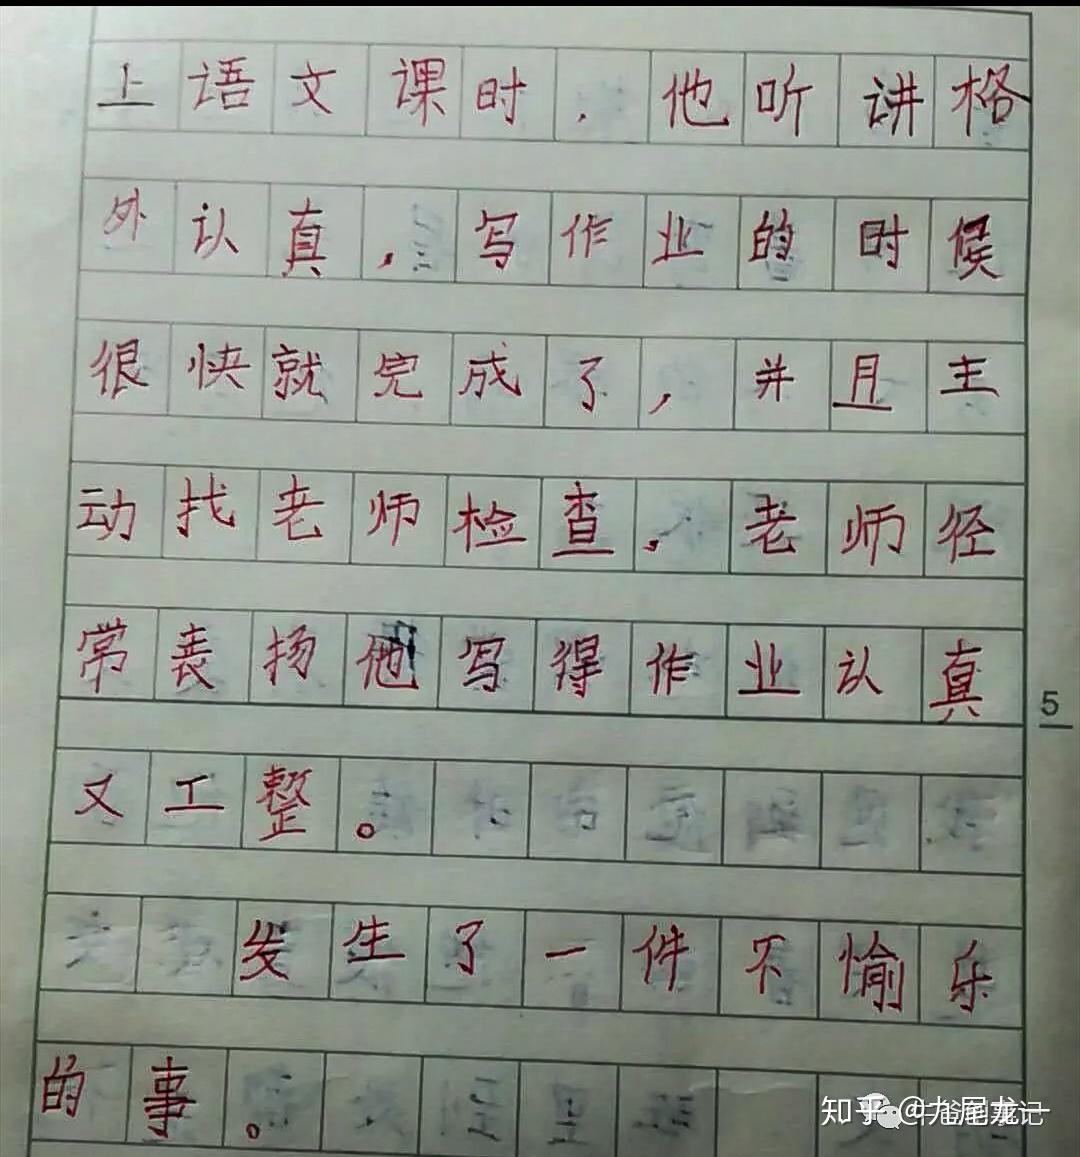 上语文课时，他听讲格
外认真，写作业的时候
很快就完成了，并且主
动找老师检查，老师径
常表扬他写得作业认真
又工整。
5
发生了一件不愉乐
的事。
知乎